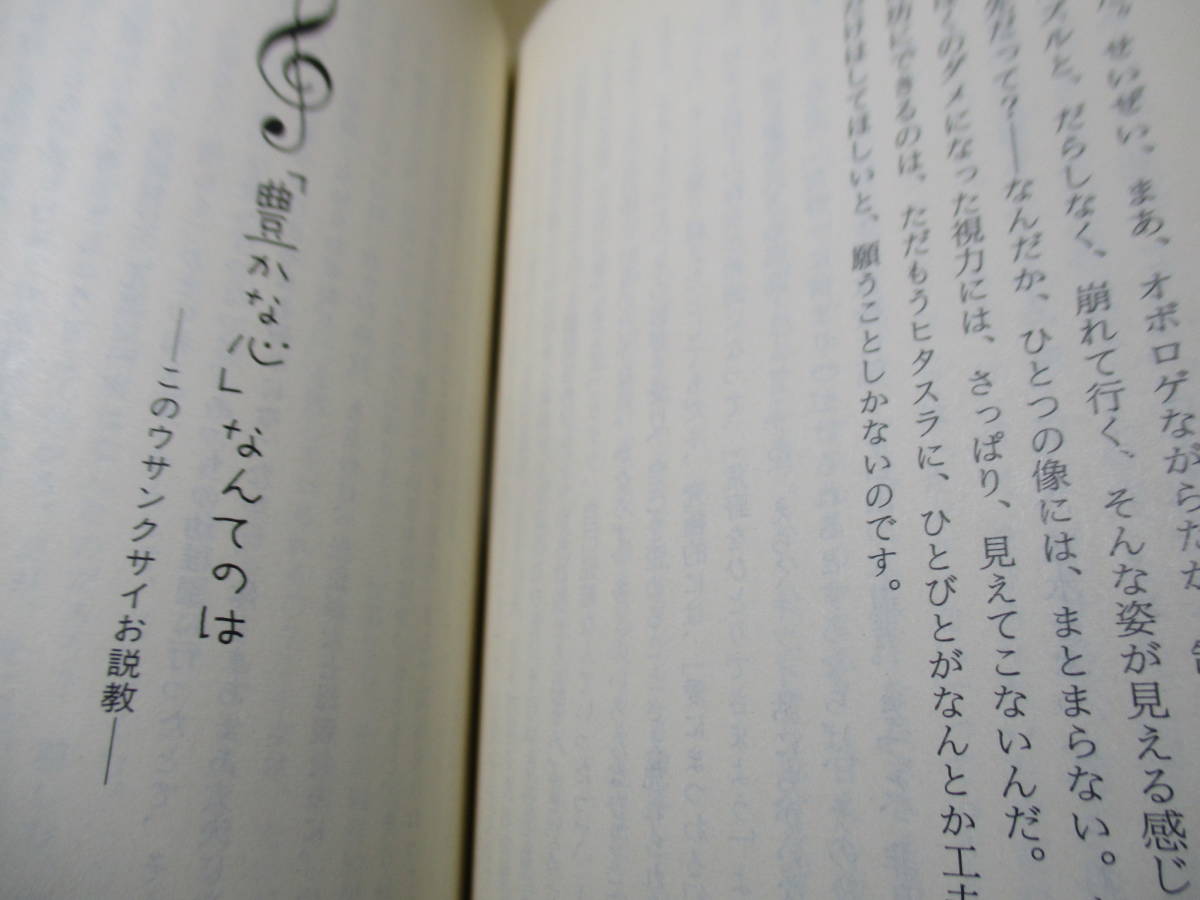 だ。せいぜい、まあ、オボロゲながらだが
ズルと、だらしなく、崩れて行く、そんな姿が見える感じ
だって？――なんだか、ひとつの像には、まとまらない。
のダメになった視力には、さっぱり、見えてこないんだ。
にできるのは、ただもうヒタスラに、ひとびとがなんとか工夫
だけはしてほしいと、願うことしかないのです。
「豊かな心」なんてのは
――このウサンクサイお説教――